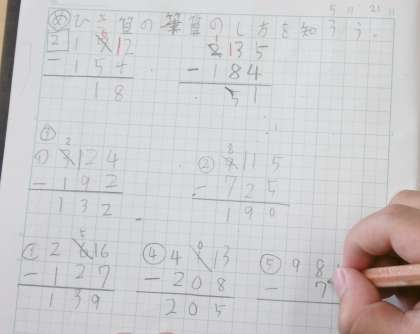 5 11 21 11
め ひき算の筆算のしかたを知ろう。
2 1 6 17
－154
18
2135
－184
51
①
① 3 2 124
－192
132
② 9 8 115
－725
190
③ 2 6 5 16
－127
139
④ 4 1 0 13
－208
205
⑤ 98
－7